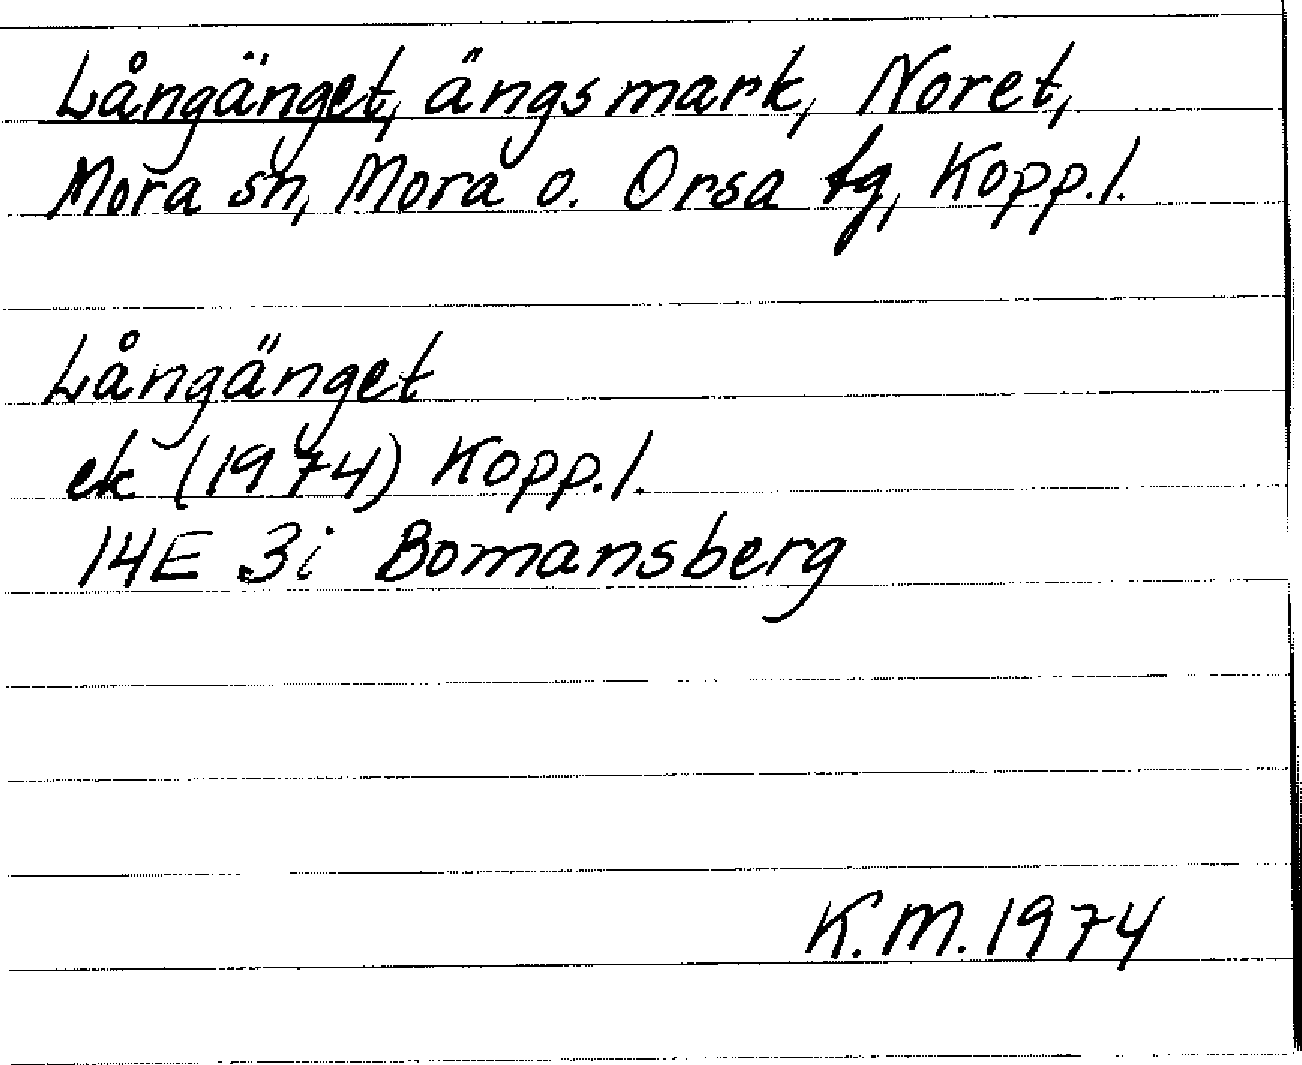 Långänget, ängsmark, Noret,
Mora sn, Mora o. Orsa tg, Kopp.l.
Långänget
ek (1974) Kopp.l.
14E 3i Bomansberg
K.M. 1974